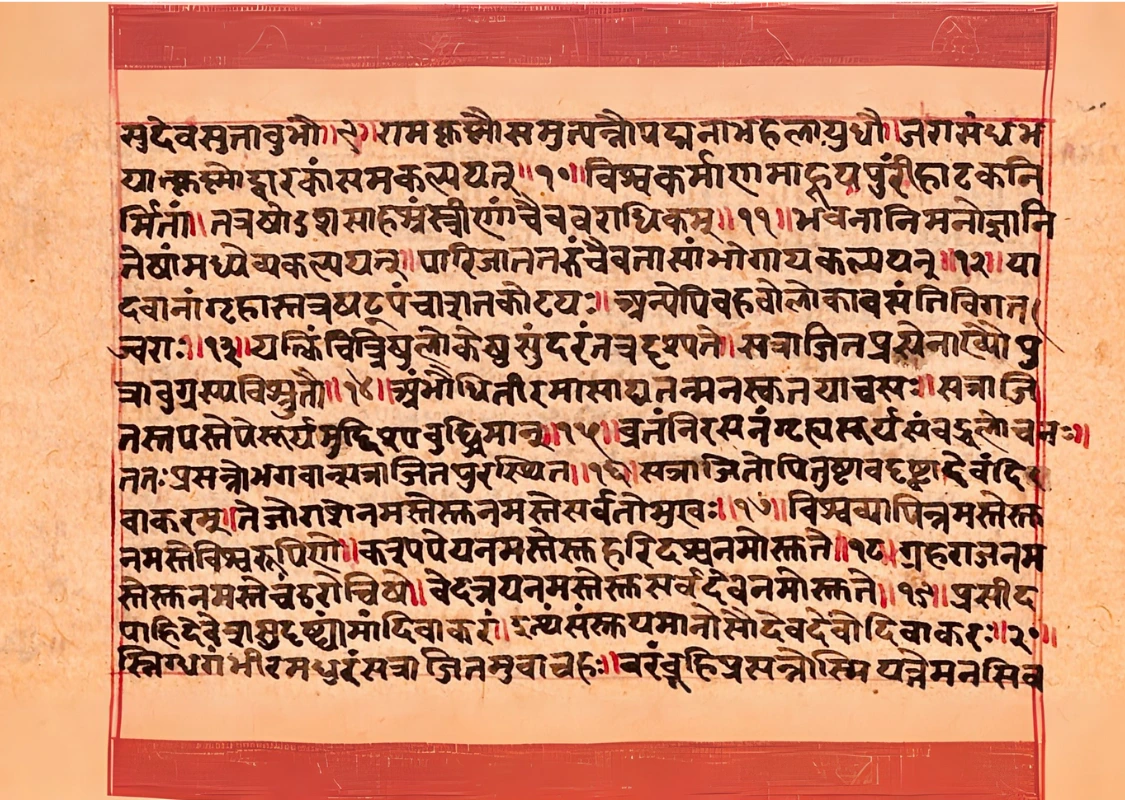 सुदेवसुतावुभौ॥९॥रामकृष्णौसमुत्पन्नौपद्मनाभहलायुधौ॥जरासंधभ
यात्कृष्णोद्वारकांसमकल्पयत्॥१०॥विश्वकर्माणमाहूयपुरींहाटकनि
र्मितां॥तत्रषोडशसाहस्रंस्त्रीणांचैववराधिकम्॥११॥भवनानिमनोज्ञानि
तेषांमध्येव्यकल्पयत्॥पारिजाततरुंचैवतासांभोगायकल्पयत्॥१२॥या
दवानांगृहास्तत्रषट्पंचाशतकोटयः॥अन्येपिबहवोलोकावसंतिविगत
ज्वराः॥१३॥यत्किंचित्त्रिषुलोकेषुसुंदरंतत्रदृश्यते॥सत्राजितप्रसेनाख्यौपु
त्रावुग्रस्यविश्रुतौ॥१४॥अंभोधितीरमासाद्यतन्मनस्कतयाचसः॥सत्राजि
तस्तपस्तेपेसूर्यमुद्दिश्यबुद्धिमान्॥१५॥व्रतंनिरसनंगृह्यसूर्यसंबद्धलोचनः॥
ततःप्रसन्नोभगवान्सत्राजितपुरस्थित॥१६॥सत्राजितोपितुष्टावदृष्ट्वादेवंदि
वाकरम्॥तेजोराशेनमस्तेस्तुनमस्तेसर्वतोमुखः॥१७॥विश्वव्यापिन्नमस्तेस्तु
नमस्तेविश्वरूपिणे॥काश्यपेयनमस्तेस्तुहरिदश्वनमोस्तुते॥१८॥ग्रहराजनम
स्तेस्तुनमस्तेचंडरोचिषे॥वेदत्रयनमस्तेस्तुसर्वदेवनमोस्तुते॥१९॥प्रसीद
पाहिदेवेशसुदृष्ट्यामांदिवाकरं॥इत्थंसंस्तूयमानोसौदेवदेवोदिवाकरः॥२०॥
स्निग्धगंभीरमधुरंसत्राजितमुवाचहः॥वरंब्रूहिप्रसन्नोस्मियत्तेमनसिव